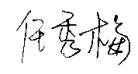 任秀梅